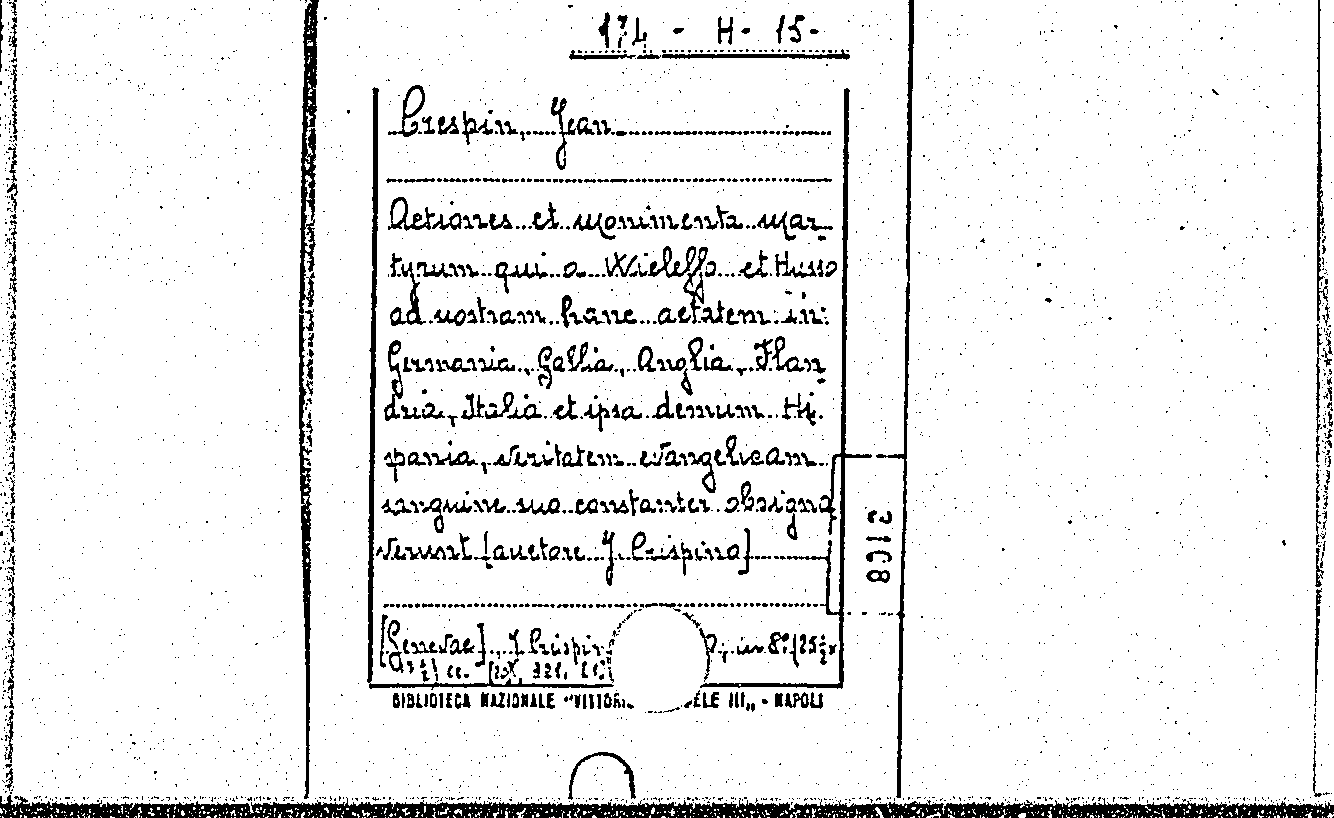 174 - H - 15 -
Crespin, Jean
Actiones et monimenta mar-
tyrum qui a Wicleffo et Husso
ad nostram hanc aetatem in
Germania, Gallia, Anglia, Flan-
dria, Italia et ipsa demum Hi-
spania, veritatem evangelicam
sanguine suo constanter obsigna
verunt [auctore J. Crispino]
3108
[Genevae], J. Crispin in 8° (25½ x
321,
BIBLIOTECA NAZIONALE "VITTORI ELE III„ - NAPOLI